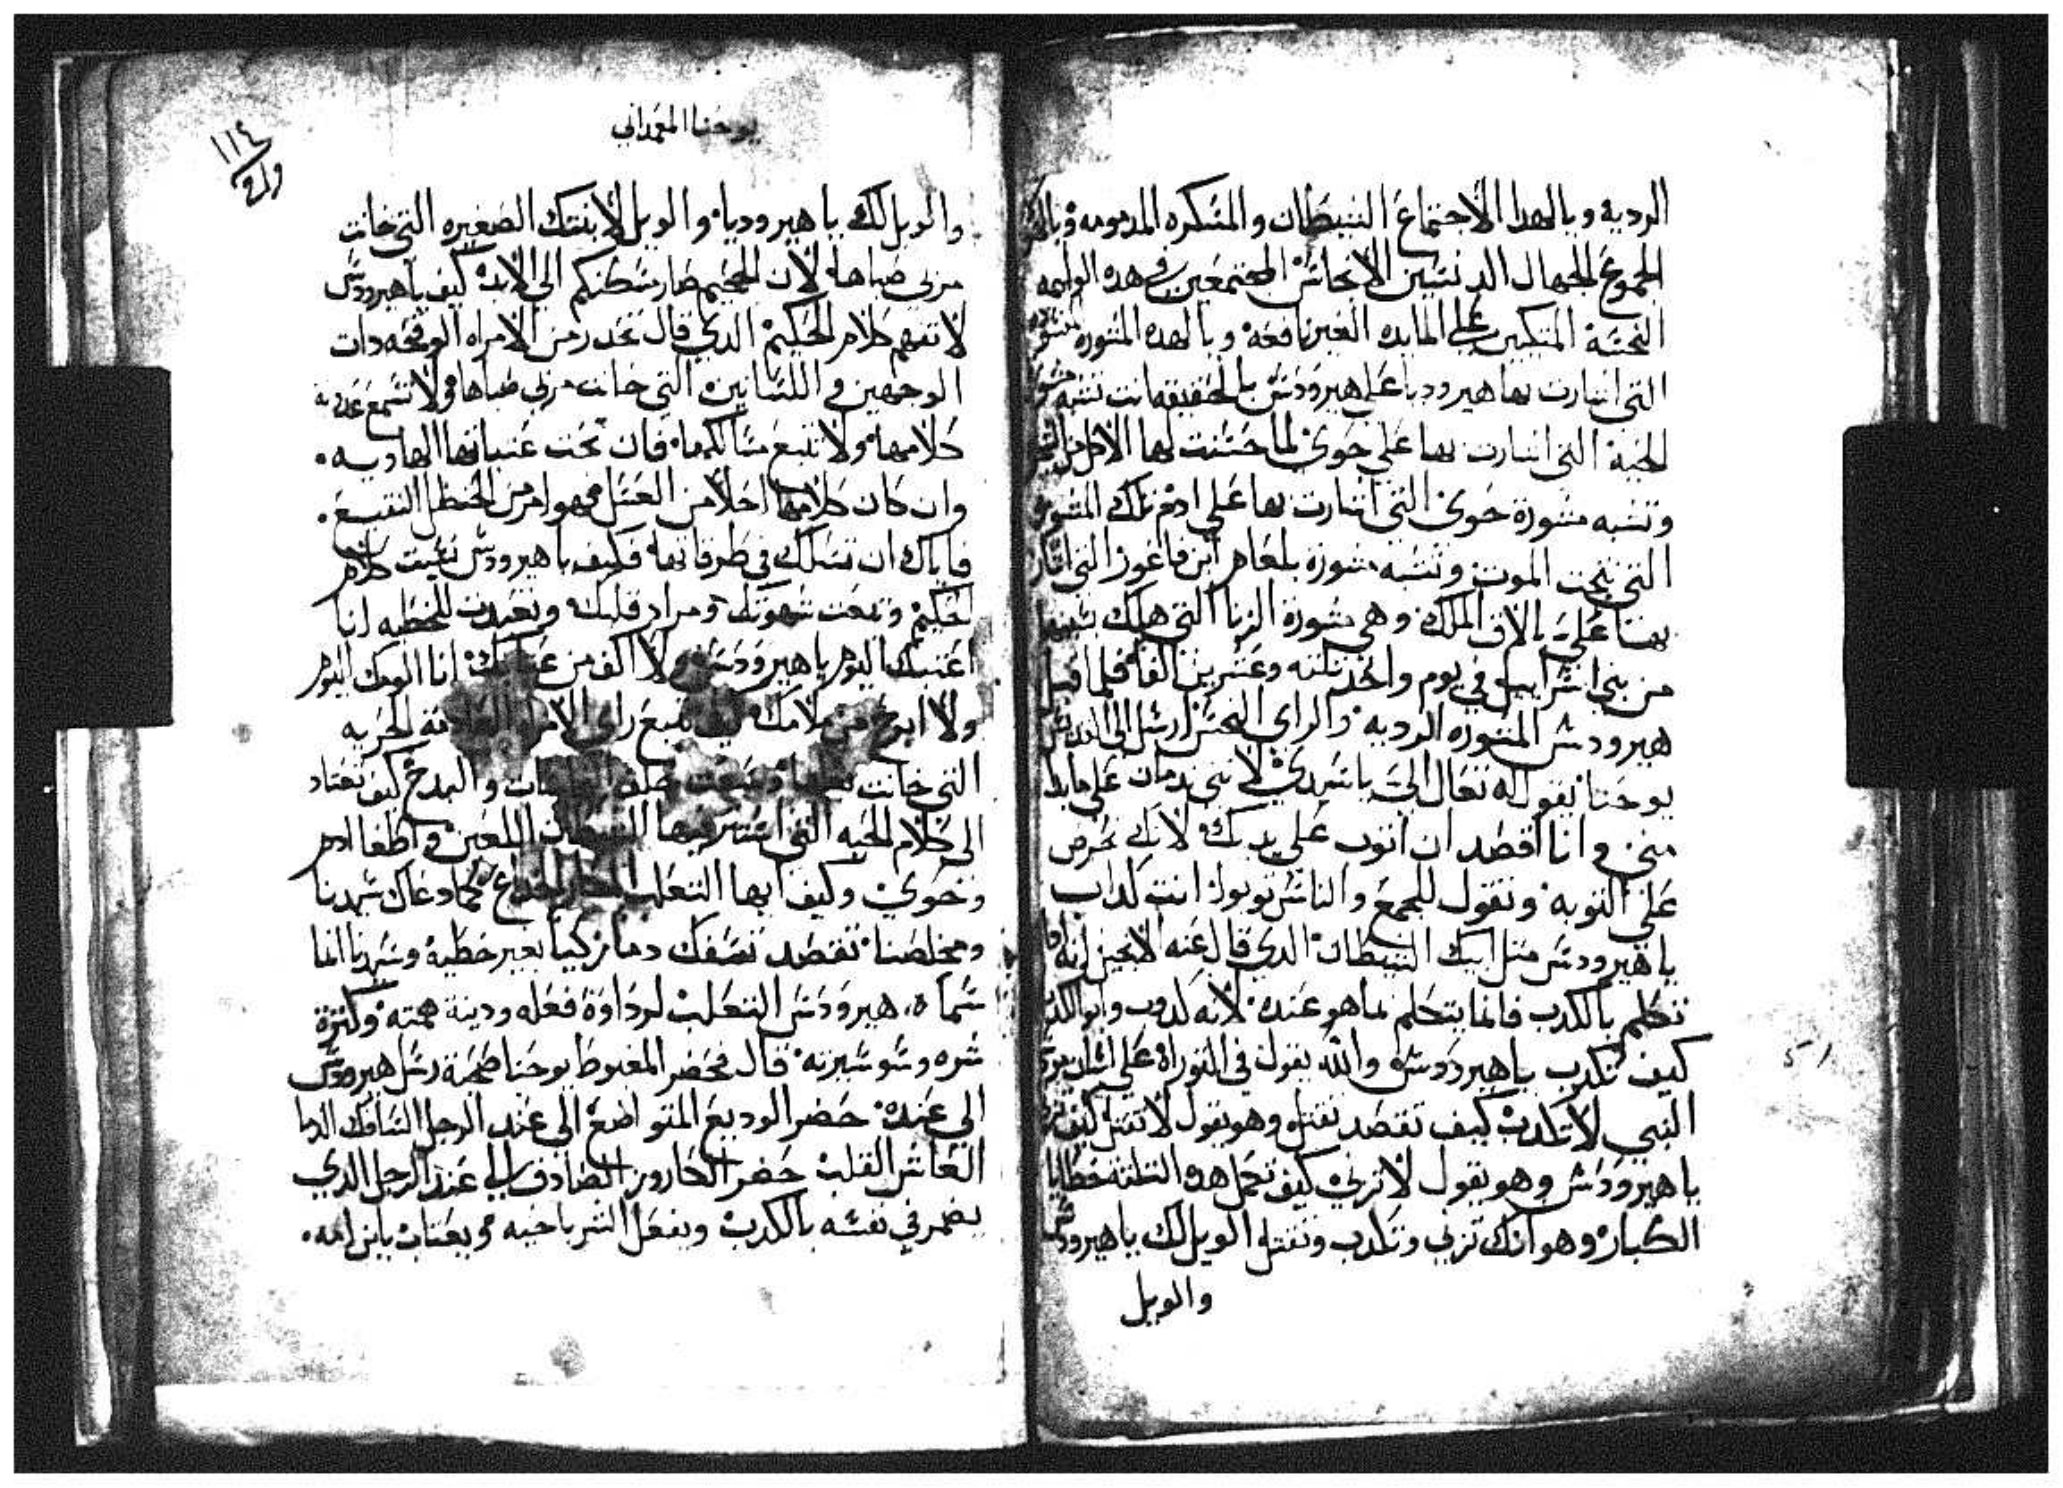 الرديه ويا لهدا الاجتماع الشيطان والمسكره المدمومه ويا
الجموع الجهال الدنسين الانجاس المجتمعين في هده الوليمه
النجسه المتكيين علي المايده الغير نافعه ويا لهده المشوره
التي اشارت بها هيروديا علي هيرودس بالحقيقه انت تشبه
الحية التي اشارت بها علي حوي لما حسنت لها الاكل من
وتشبه مشورة حوي التي اشارت بها علي ادم تلك المشوره
التي نتجت الموت وتشبه مشورة بلعام ابن فاغور التي اشار
بها علي بالاق الملك وهي مشورة الزنا التي هلك بسببها
من بني اسراييل في يوم واحد تلته وعشرين الفا فلما قبل
هيرودس المشوره الرديه والراي النجس ارسل الي القديس
يوحنا يقول له تعال الي يا سيدي لانني ندمان علي ما بدا
مني وانا اقصد ان اتوب علي يديك لانك تحرص
علي التوبه وتقول للجمع والناس توبوا انت كداب
يا هيرودس مثل ابيك الشيطان الدي قال عنه الانجيل انه
تكلم بالكدب فانما يتكلم بما هو عنده لانه كدوب وابو الكدب
كيف تكدب يا هيرودس والله يقول في التوراه علي لسان موسي
النبي لا تكدب كيف تقصد تقتل وهو يقول لا تقتل كيف
يا هيرودس وهو يقول لا تزني كيف تحمل هده التلته خطايا
الكبار وهو انك تزني وتكدب وتقتل الويل لك يا هيرودس
والويل
يوحنا المعمداني
١١٤
والويل لك يا هيروديا والويل لابنتك الصغيره التي خانت
مزبي صباها لان الجحيم صار مسكنكم الي الابد كيف يا هيرودس
لا تفهم كلام الحكيم الدي قال تحدر من الامراه الوقحه دات
الوجهين واللسانين التي خانت مربي صباها ولا تسمع
كلامها ولا تتبع مسالكها فان تحت عتباتها الهاويه
وان كان كلامها احلا من العسل فهو امر من الحنظل النقيع
فاياك ان تسلك في طرقاتها فكيف يا هيرودس نسيت كلام
الحكيم وتبعت شهوتك ومراد قلبك وتعبدت للخطيه انا
اعتبك اليوم يا هيرودس ولا اكف من عتابك انا الومك اليوم
ولا ابرح من ملامك تتبع راي الامراه ية الحربه
التي خانت والمدح كيف تنقاد
الي كلام الحيه التي استتر فيها الشيطان اللعين واطغا ادم
وحوي وكيف ايها التعلب المكار الخداع كما دعاك سيدنا
ومخلصنا تقصد تسفك دما زكيا بغير خطية وسيدنا انما
سماه هيرودس التعلب لرداوة فعله ودينة همته وكترة
شره وسو سيرته قال فحضر المغبوط يوحنا صحبة رسل هيرودس
الي عنده حضر الوديع المتواضع الي عند الرجل السافك الدما
القاسي القلب حضر الكاروز الصادق الي عند الرجل الدي
يضمر في نفسه بالكدب ويفعل الشر باخيه ويعتاب بابن امه